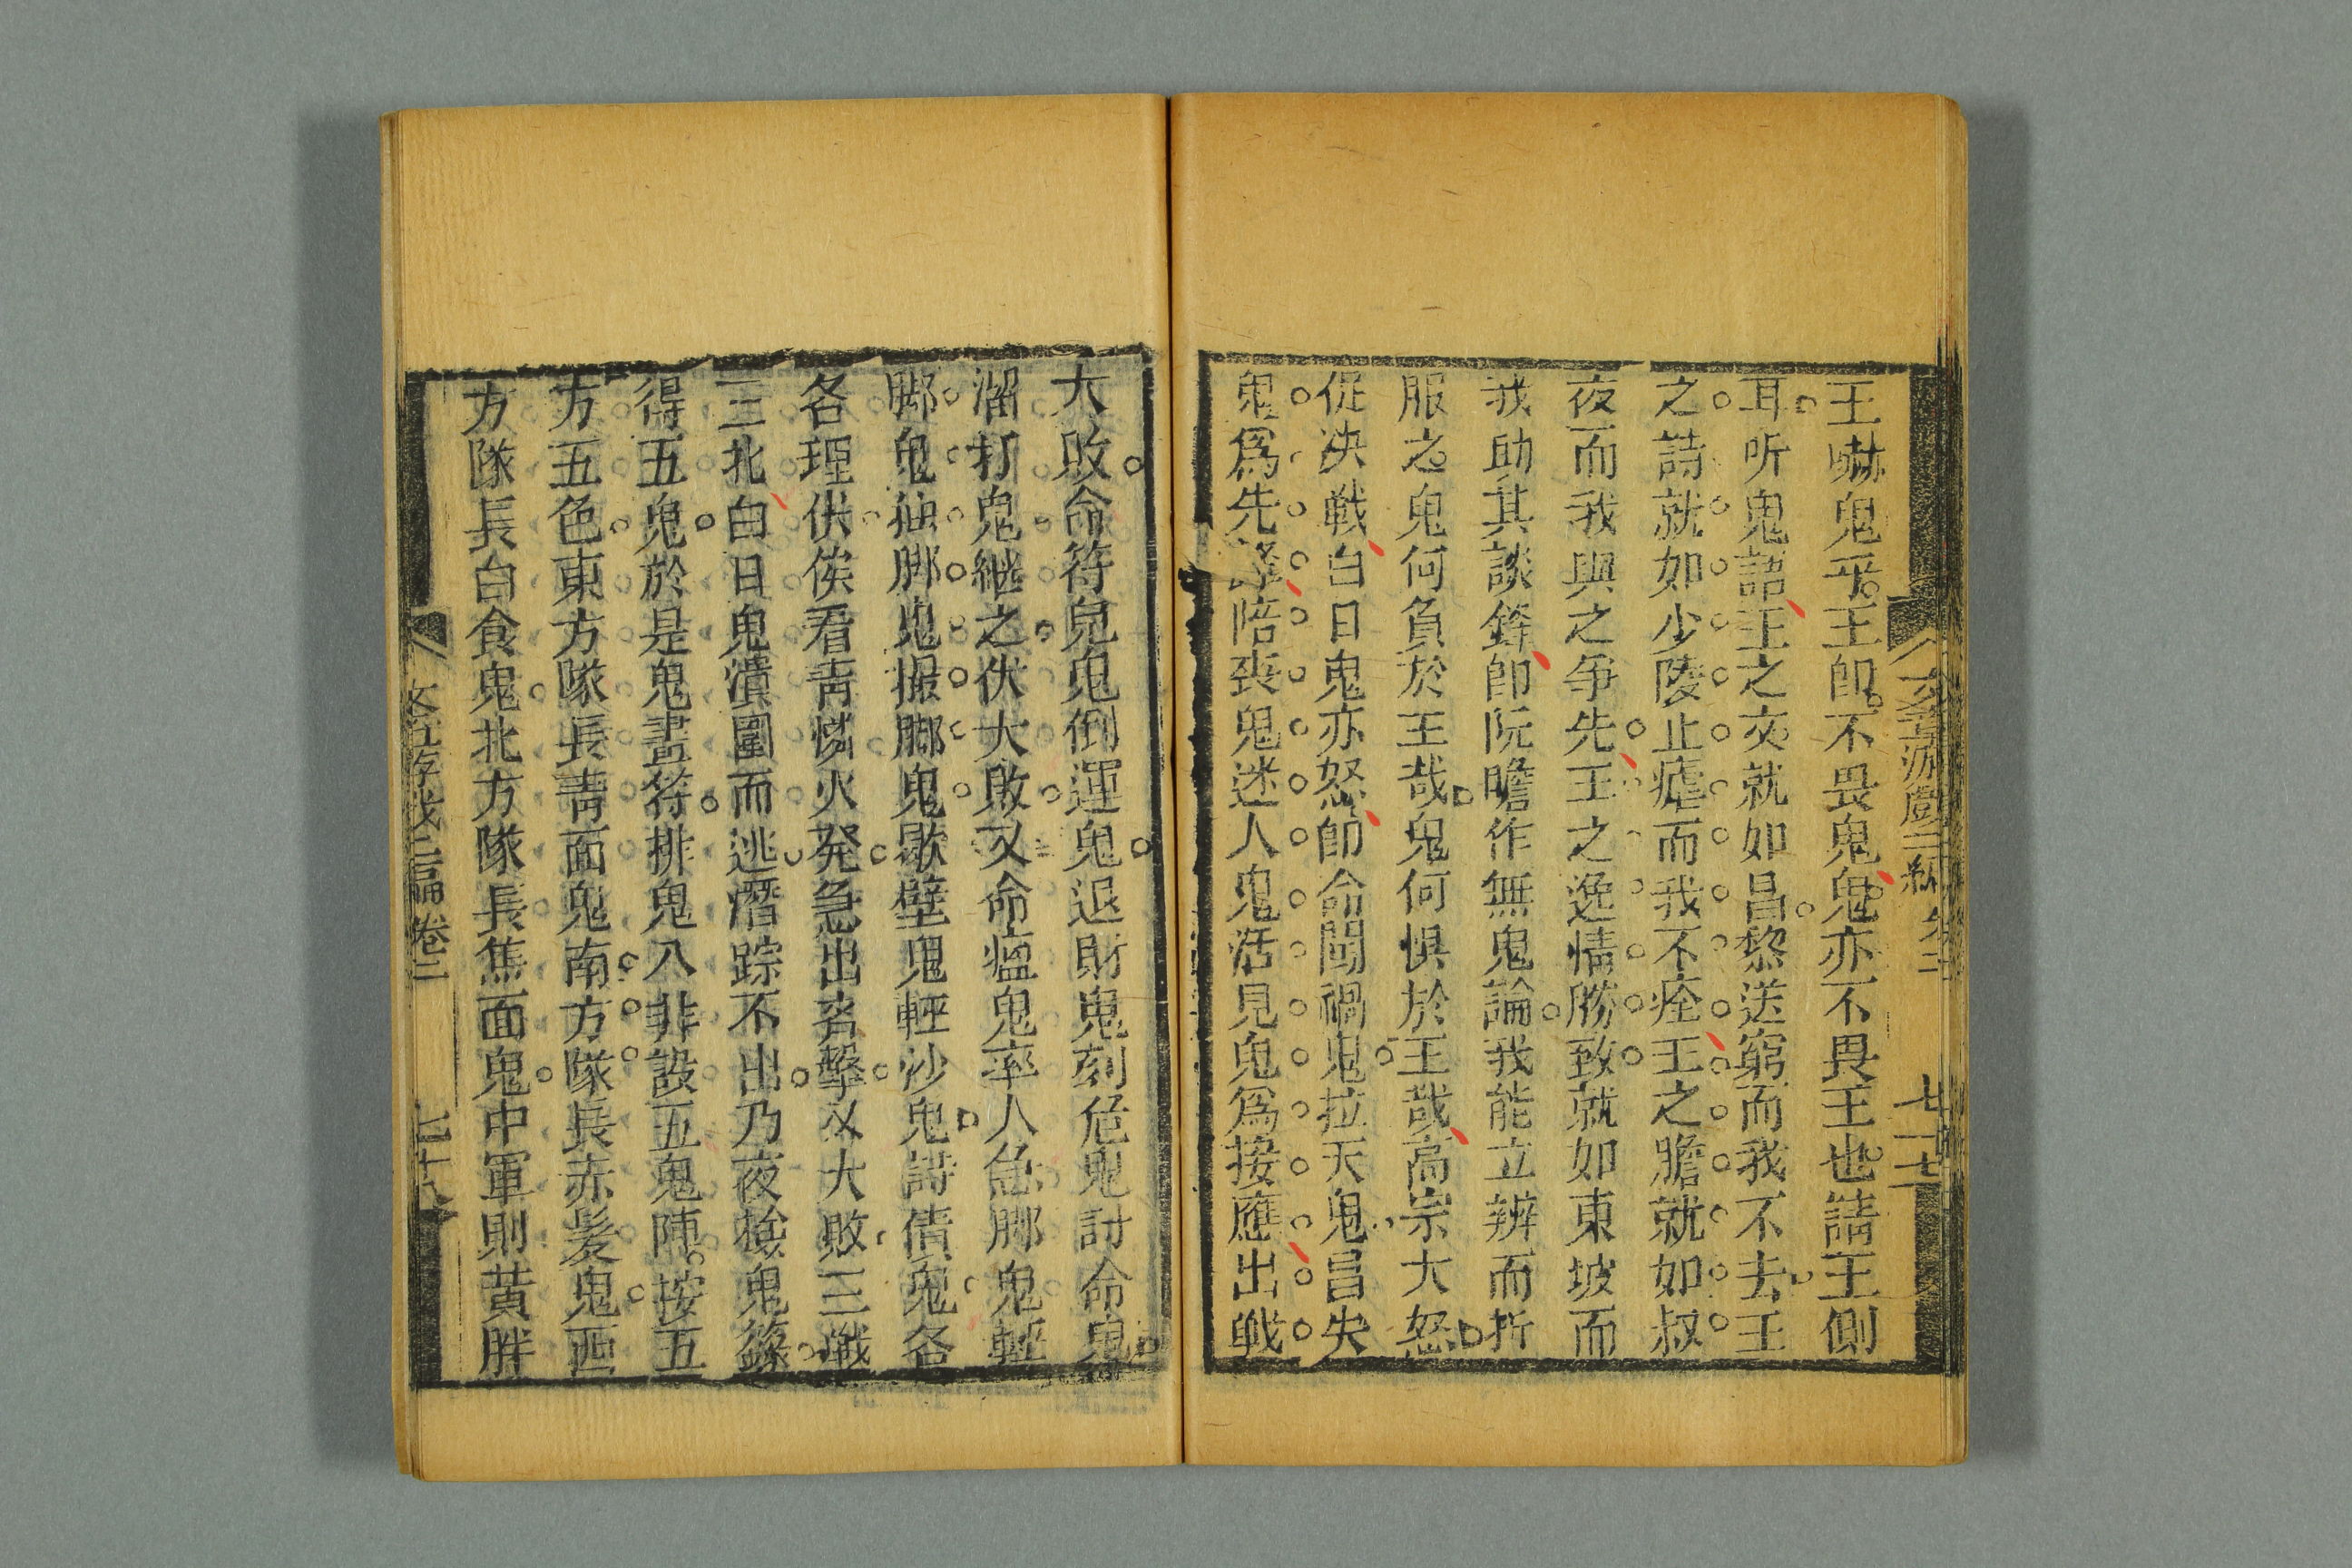 王嚇鬼乎王即不畏鬼鬼亦不畏王也請王側
耳听鬼語王之文就如昌黎送窮而我不去王
之詩就如少陵止瘧而我不痊王之膽就如叔
夜而我與之爭先王之逸情勝致就如東坡而
我助其談鋒即阮瞻作無鬼論我能立辨而折
服之鬼何負於王哉鬼何惧於王哉高宗大怒
促决戰白日鬼亦怒即命闖禍鬼拉天鬼冒失
鬼爲先鋒陪喪鬼迷人鬼活見鬼爲接應出戰
七十七
大敗命符鬼鬼倒運鬼退財鬼刻危鬼討命鬼
溜打鬼継之伏大敗又命瘟鬼率人急脚鬼輕
脚鬼抽脚鬼掇脚鬼歇壁鬼輕沙鬼詩倩鬼各
各理供侯看青憐火発急出夯擊又大敗三戰
三北白日鬼潰圍而逃潛踪不出乃夜検鬼籙
得五鬼於是鬼畫符排鬼八卦設五鬼陣按五
方五色東方隊長青面鬼南方隊長赤髪鬼西
方隊長白食鬼北方隊長焦面鬼中軍則黃胖
卷二
七十八